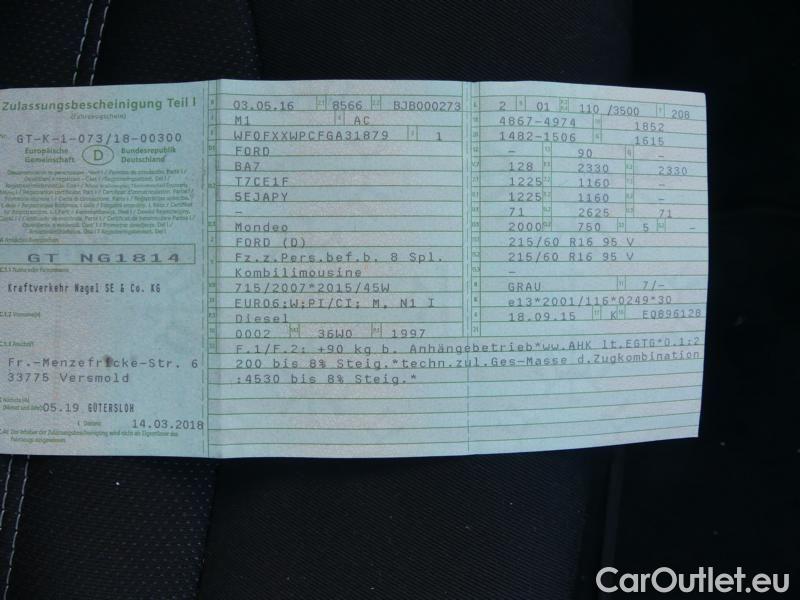 Zulassungsbescheinigung Teil I
(Fahrzeugschein)
Nr. GT-K-1-073/18-00300
Europäische Gemeinschaft D Bundesrepublik Deutschland
GT NG1814
Kraftverkehr Nagel SE & Co. KG
Fr.-Menzefricke-Str. 6
33775 Versmold
05.19 GÜTERSLOH
14.03.2018
03.05.16 8566 BJB000273
M1 AC
WF0FXXWPCFGA31879 1
FORD
BA7
T7CE1F
5EJAPY
–
Mondeo
FORD (D)
Fz.z.Pers.bef.b. 8 Spl.
Kombilimousine
715/2007*2015/45W
EURO6;W;PI/CI; M, N1 I
Diesel
0002 36W0 1997
2 01 110 /3500 208
4867-4974 1852
1482-1506 1615
– 90 –
128 2330 2330
1225 1160 –
1225 1160 –
71 2625 71
2000 750 5 –
215/60 R16 95 V
215/60 R16 95 V
–
GRAU 7/–
e13*2001/116*0249*30
18.09.15 K EQ896128
F.1/F.2: +90 kg b. Anhängebetrieb*ww.AHK lt.EGTG*O.1:2
200 bis 8% Steig.*techn.zul.Ges-Masse d.Zugkombination
:4530 bis 8% Steig.*
CarOutlet.eu